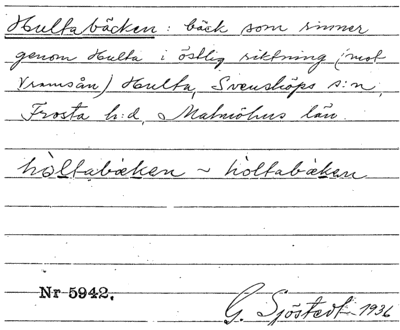 Hultabäcken: bäck som rinner
genom Hulta i östlig riktning (mot
Vramsån) Hulta, Svensköps s:n,
Frosta h:d, Malmöhus län.
hòltabæken ~ hòltabàken
Nr 5942.
G. Sjöstedt 1936